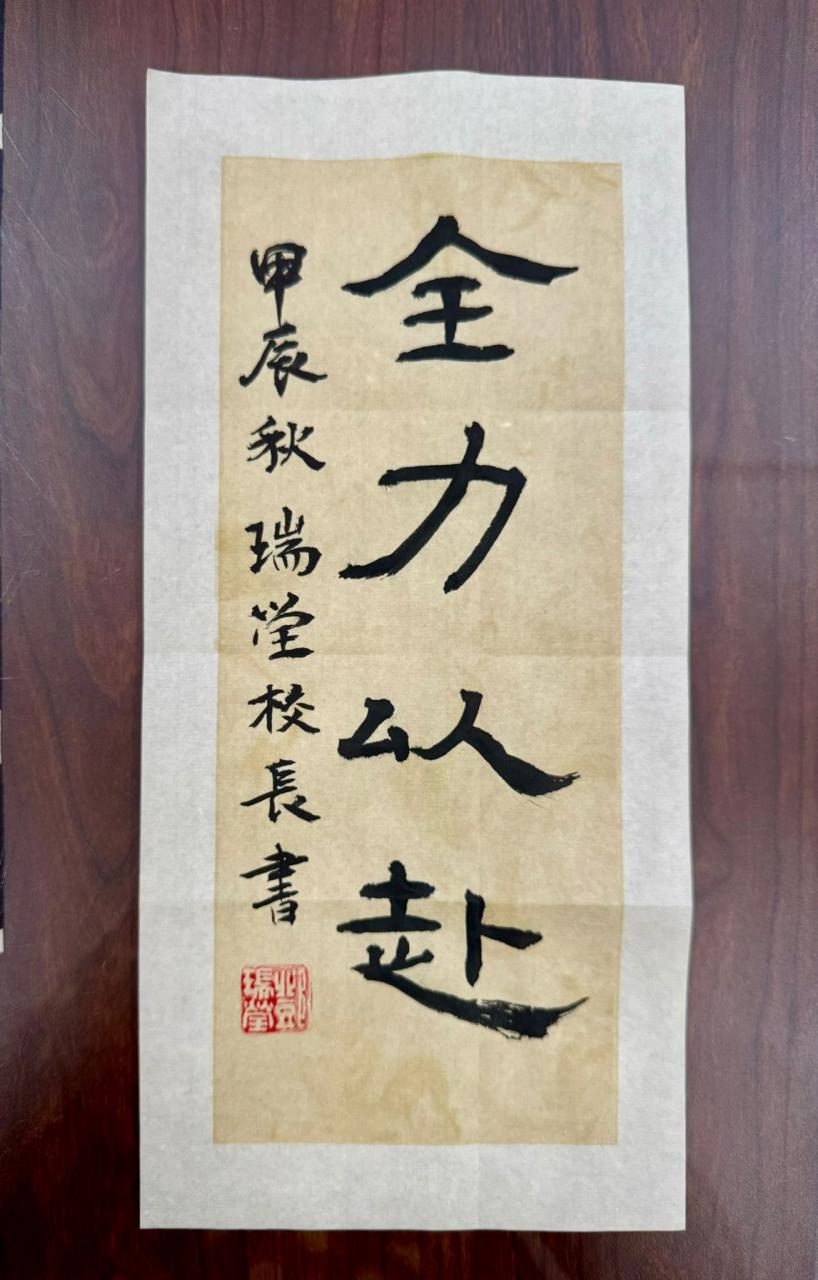 全力以赴
甲辰秋 瑞瑩校長書
鄧瑞瑩